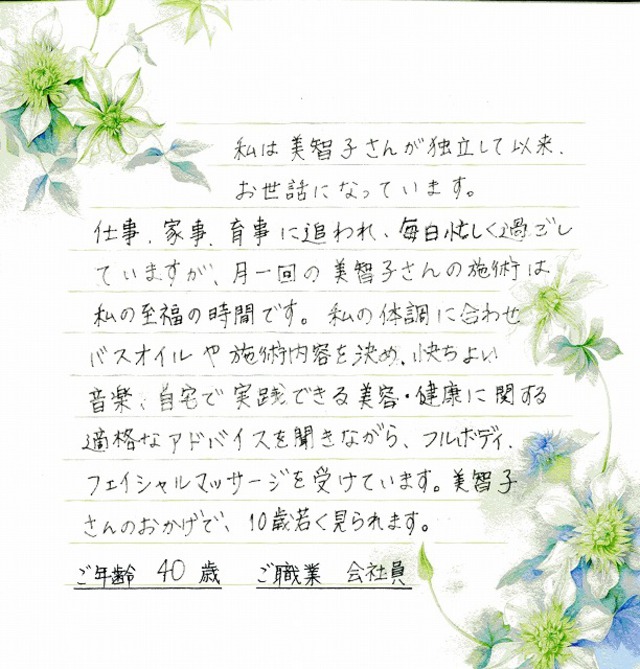 私は美智子さんが独立して以来、
お世話になっています。
仕事、家事、育事に追われ、毎日忙しく過ごし
ていますが、月一回の美智子さんの施術は
私の至福の時間です。私の体調に合わせ
バスオイルや施術内容を決め、快ちよい
音楽、自宅で実践できる美容・健康に関する
適格なアドバイスを聞きながら、フルボディ、
フェイシャルマッサージを受けています。美智子
さんのおかげで、10歳若く見られます。
ご年齢 40 歳 ご職業 会社員